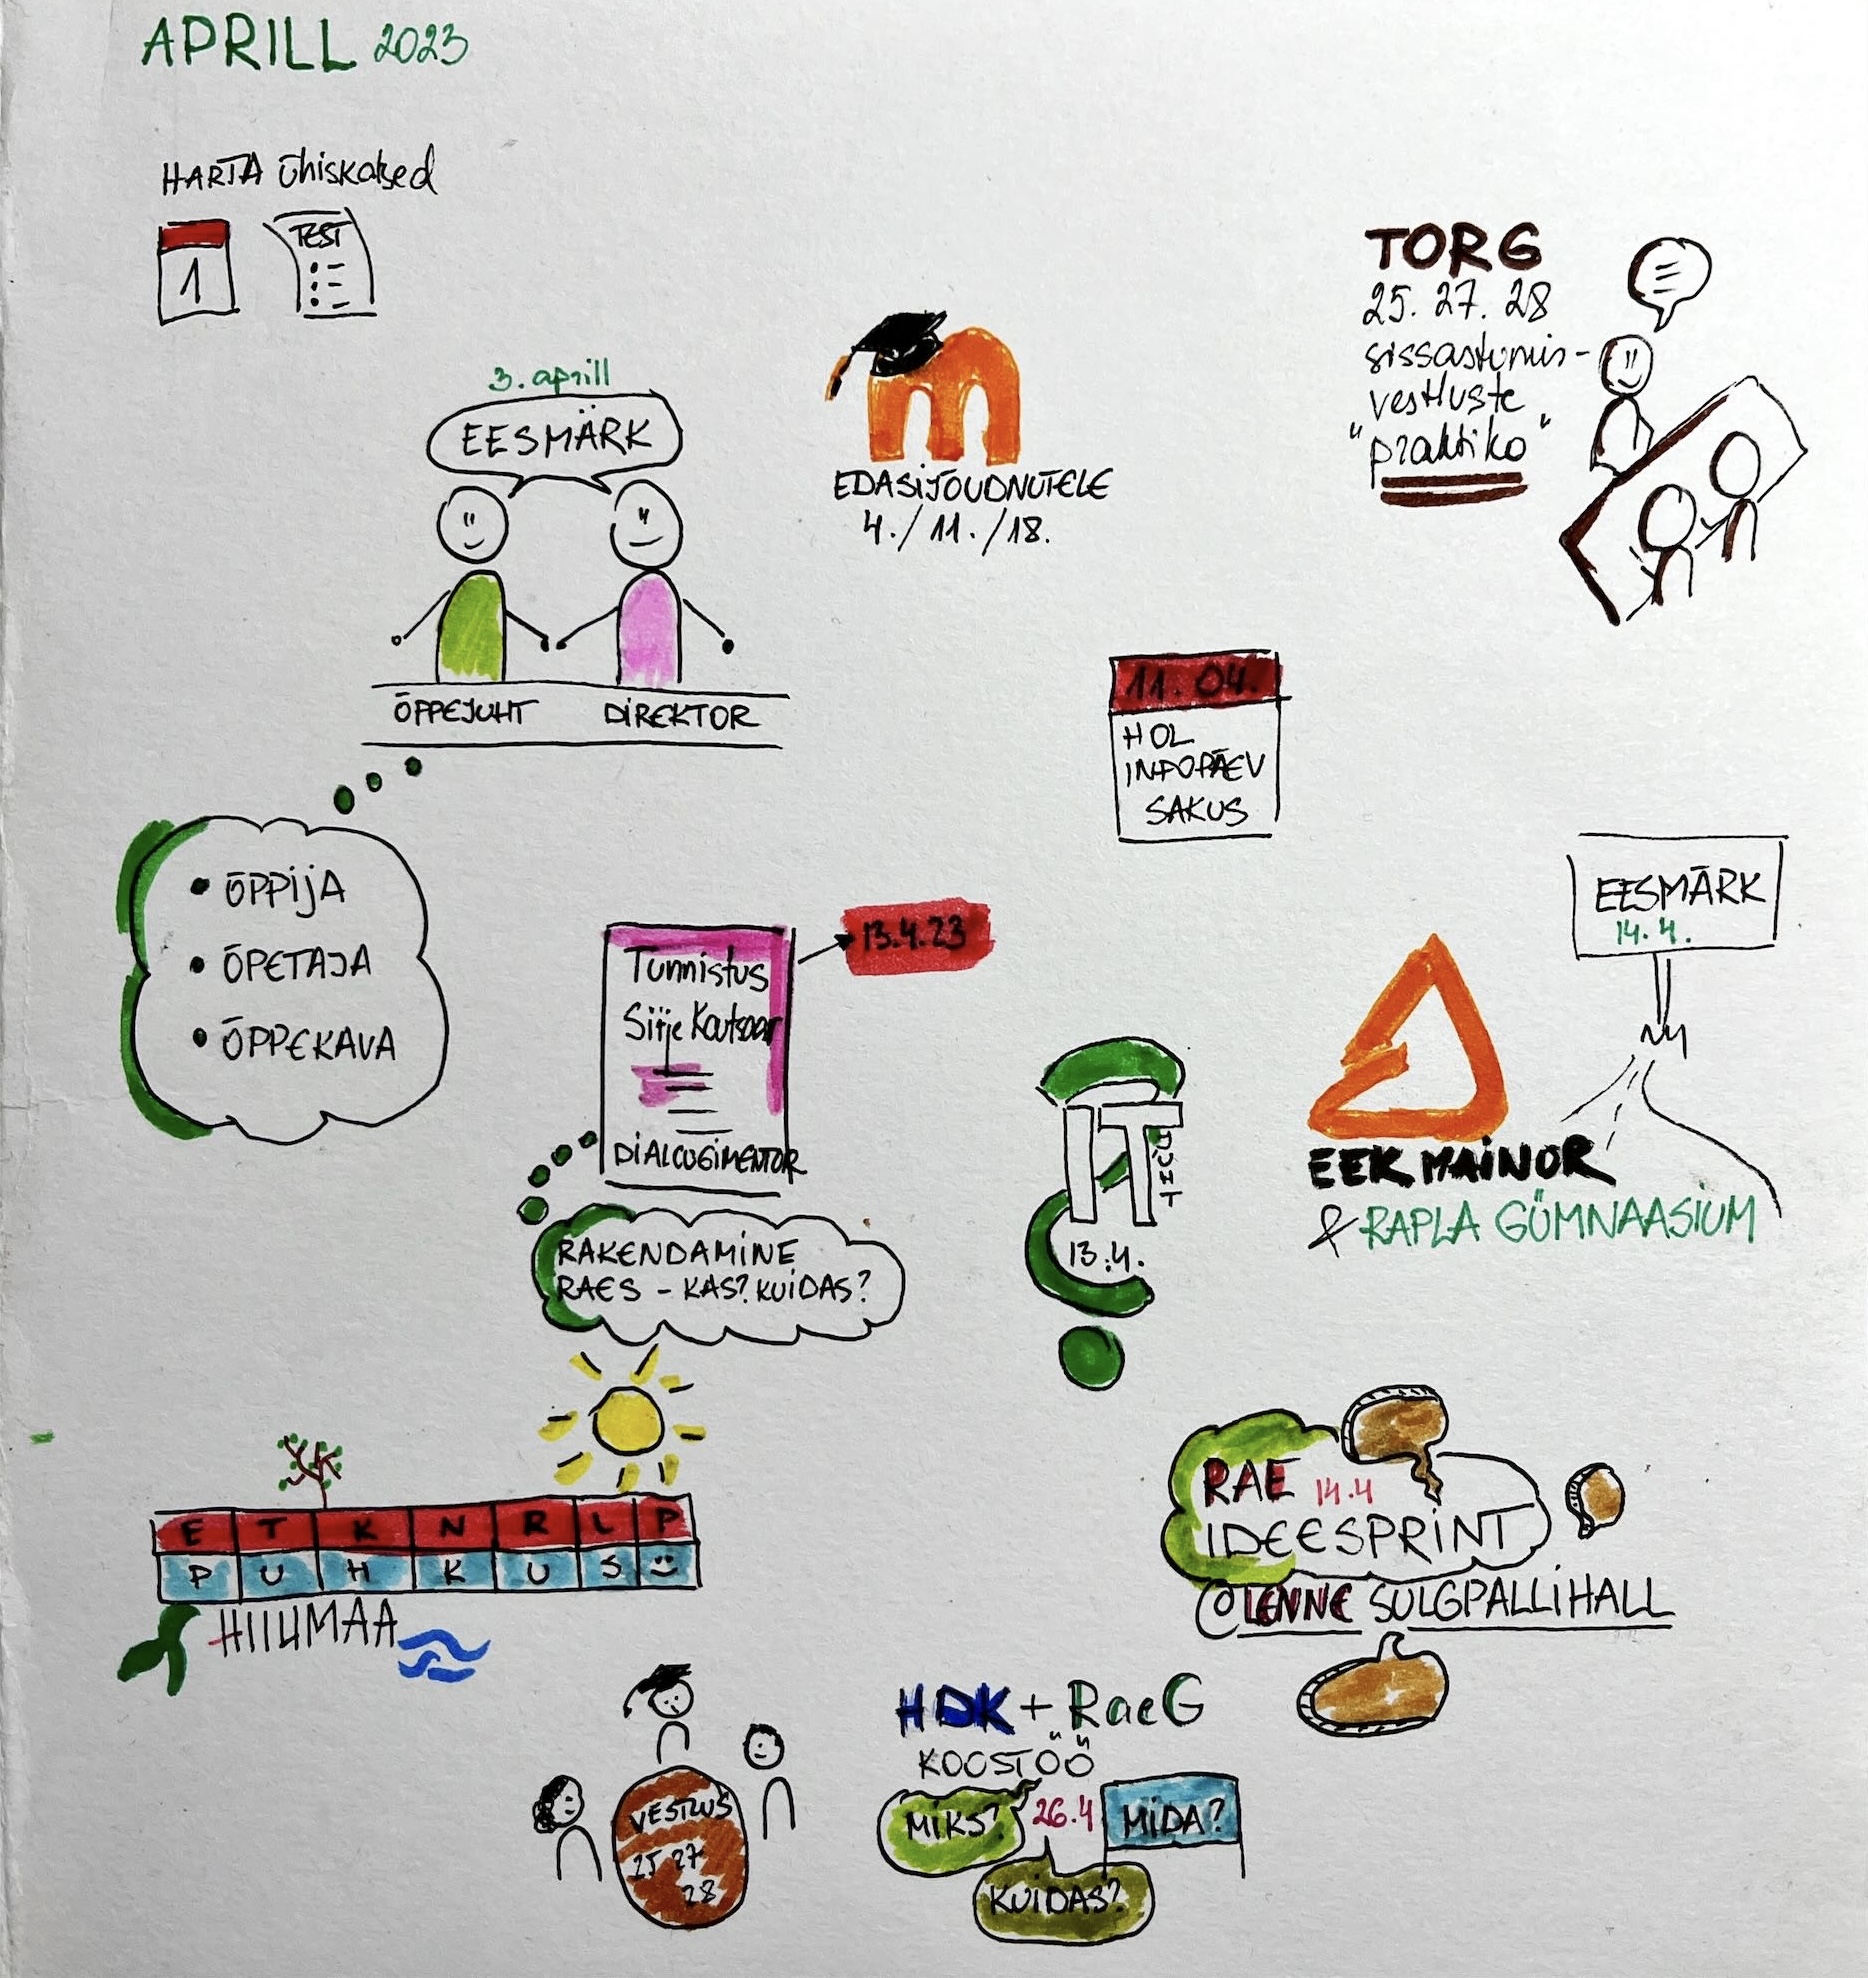 APRILL 2023
HARTA ühiskatsed
1
TEST
TORG
25. 27. 28
sissastumis-
vestluste
"praktika"
3. aprill
EESMÄRK
m
EDASIJÕUDNUTELE
4./11./18.
ÕPPEJUHT DIREKTOR
11.04.
HOL
INFOPÄEV
SAKUS
• ÕPPIJA
• ÕPETAJA
• ÕPPEKAVA
EESMÄRK
14.4.
13.4.23
Tunnistus
Sirje Kautsaar
DIALOOGIMENTOR
IT
JUHT
13.4.
EEK MAINOR
& RAPLA GÜMNAASIUM
RAKENDAMINE
RAES - KAS? KUIDAS?
RAE 14.4
IDEESPRINT
@LENNE SULGPALLIHALL
E T K N R L P
P U H K U S
HIIUMAA
HDK + RaeG
KOOSTÖÖ
MIKS? 26.4 MIDA?
KUIDAS?
VESTLUS
25 27
28